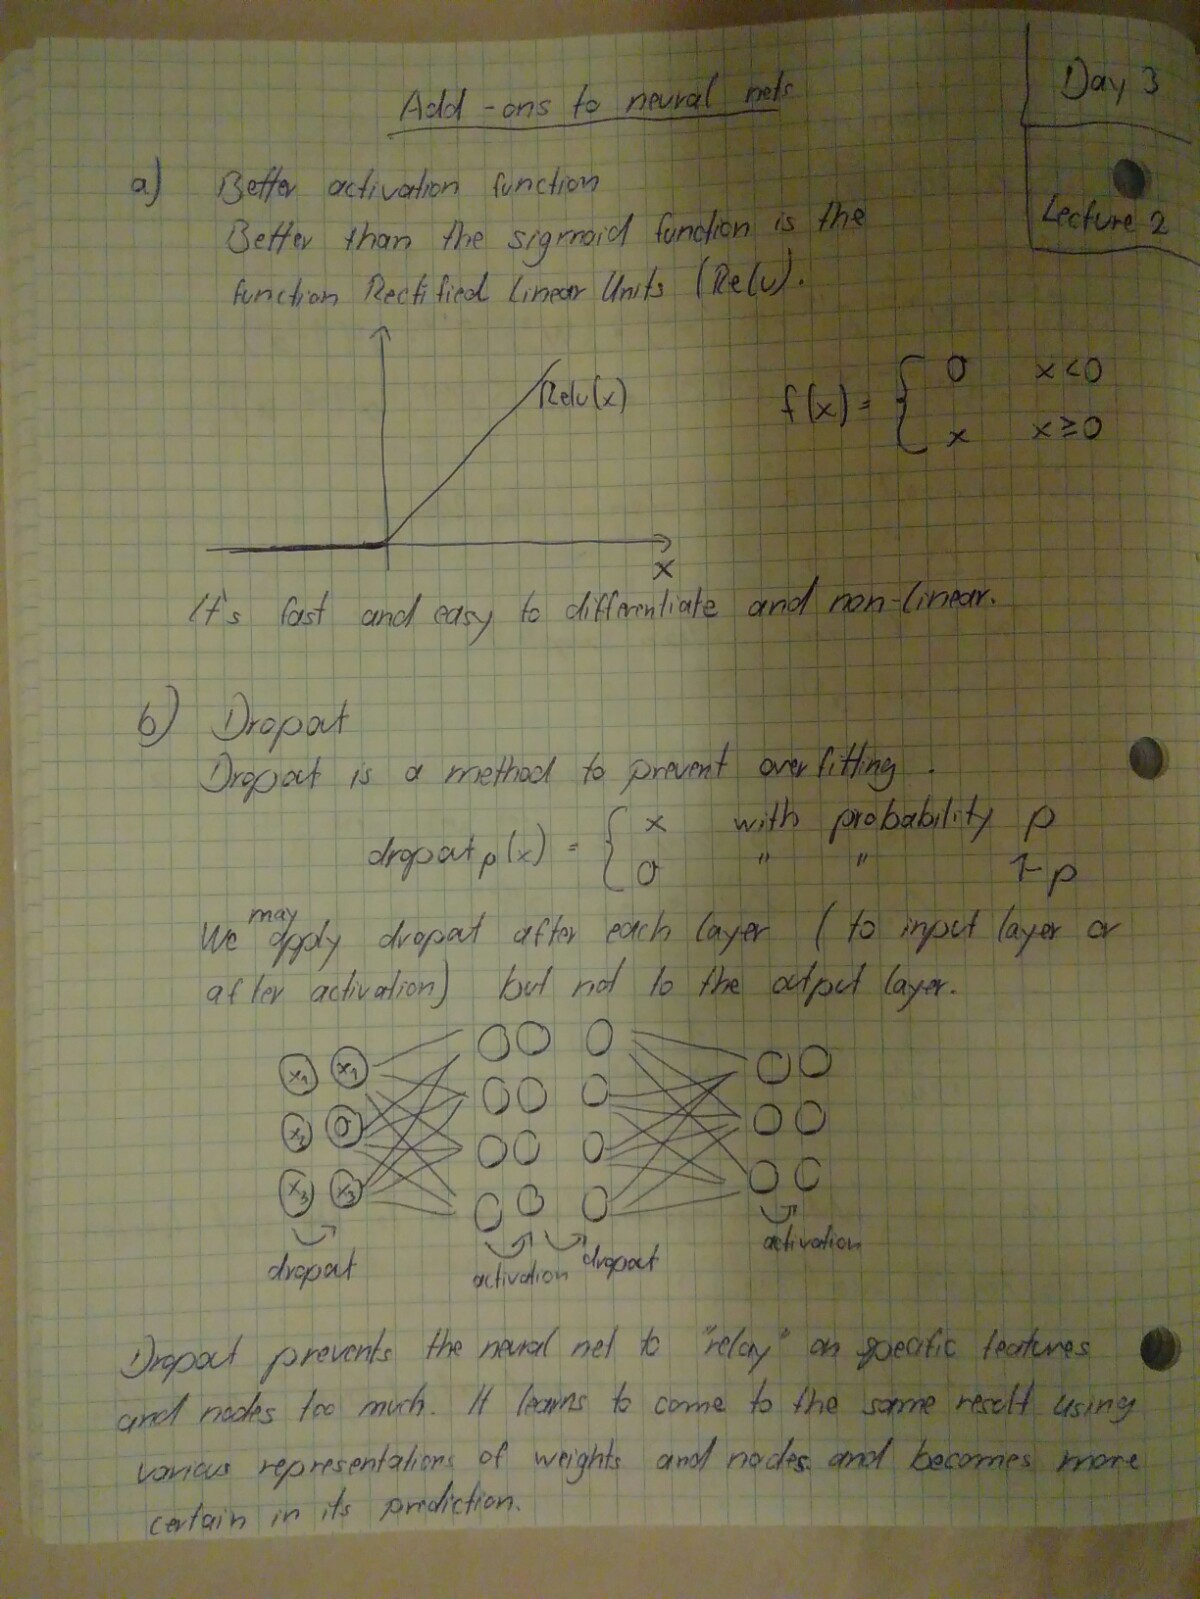 Add-ons to neural nets
Day 3
Lecture 2
a) Better activation function
Better than the sigmoid function is the
function Rectified Linear Units (Relu).
Relu(x)
f(x) = { 0 x<0
x x≥0
x
It's fast and easy to differentiate and non-linear.
b) Dropout
Dropout is a method to prevent overfitting.
dropout p(x) = { x with probability p
0 " " 1-p
We may apply dropout after each layer (to input layer or
after activation) but not to the output layer.
x1 x1
x2 0
x3 x3
dropout
activation
dropout
activation
Dropout prevents the neural net to "relay" on specific features
and nodes too much. It learns to come to the same result using
various representations of weights and nodes and becomes more
certain in its prediction.